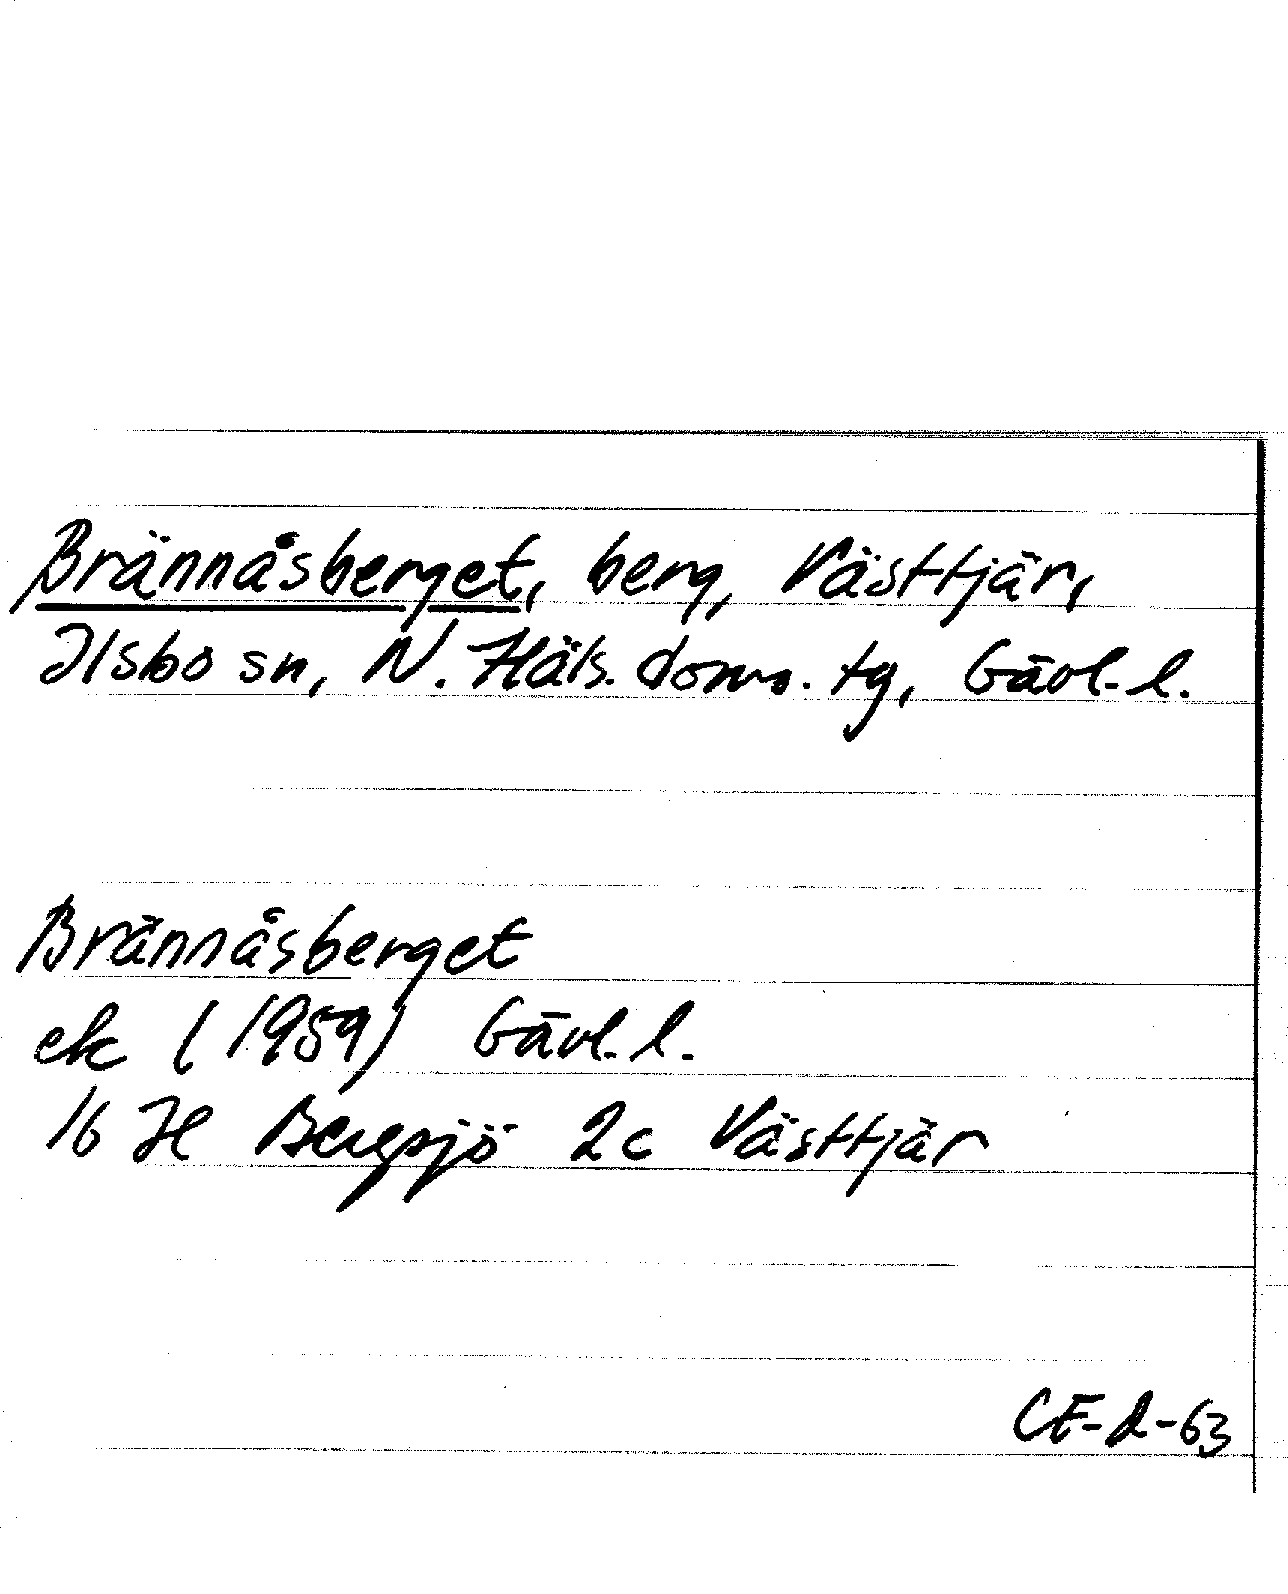 Brännåsberget, berg, Västtjär,
Ilsbo sn, N. Häls. doms. tg, Gävl. l.
Brännåsberget
ek (1959) Gävl. l.
16 H Bergsjö 2c Västtjär
CE-d-63